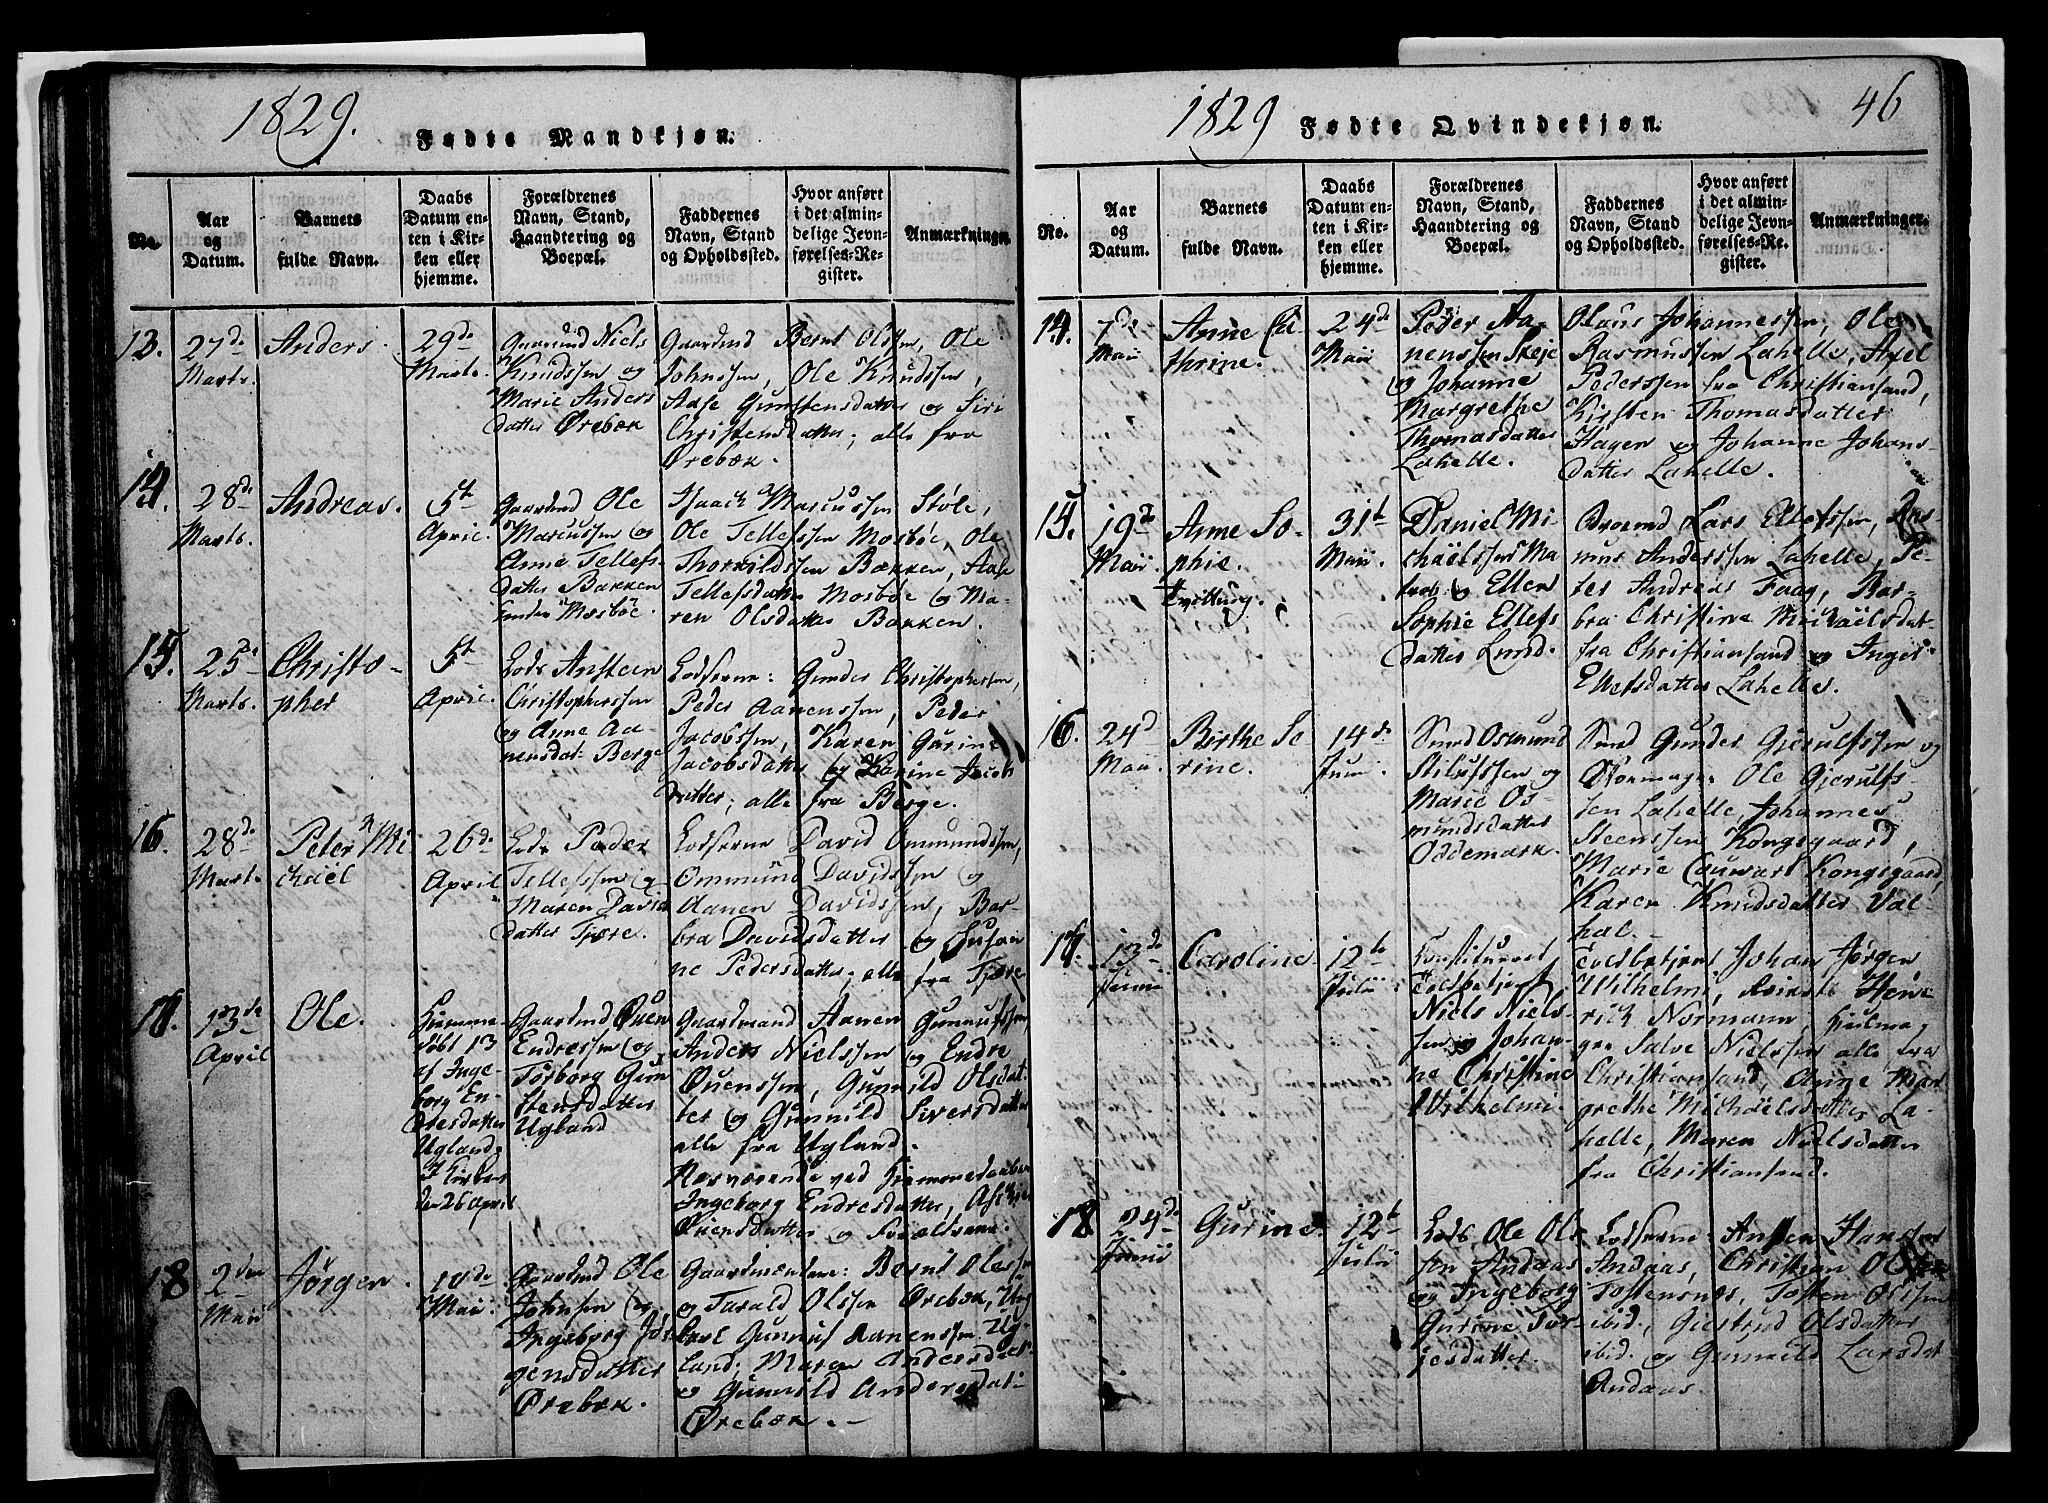 1829.
Fødte Mandkjøn.
No.
Aar
og
Datum.
Barnets
fulde Navn.
Daabs
Datum en-
ten i Kir-
ken eller
hjemme.
Forældrenes
Navn, Stand,
Haandtering og
Boepæl.
Faddernes
Navn, Stand
og Opholdssted.
Hvor anført
i det almin-
delige Jevn-
førelses-Re-
gister.
Anmærkninger.
13.
27de
Marts.
Anders
29de
Marts.
Gaardmd Niels
Knudssen og
Marie Anders
datter Ørebæk
Gaardmd Bernt Olssen, Ole
Johnssen, Ole Knudssen,
Aase Gunstensdatter og Siri
Christensdatter, alle fra
Ørebæk.
14.
28de
Marts.
Andreas.
5te
April.
Gaardmd Ole
Marcussen og
Anne Tellefs
datter Bakken
under Mosbøe.
Isaach Marcussen Støle,
Ole Tellefssen Mosbøe, Ole
Thorkildssen Bakken, Aase
Tellefsdatter Mosbøe og Ma-
ren Olsdatter Bakken.
15.
25de
Marts.
Christo-
pher
5te
April.
Lods Ansteen
Christophersen
og Anne Aa-
nensdat: Berge
Lodserne: Gunder Christophersen,
Peder Aanenssen, Peder
Jacobssen, Karen Gurine
Jacobsdatter og Karine Jacob
datter, alle fra Berge.
16.
28de
Marts.
Peter Mi
chael
26de
April
Lods Peder
Tellefssen og
Maren David
datter Fjære.
Lodserne David Ommundssen,
Ommund Davidssen og
Aanen Davidssen, Bar-
bra Davidsdatter og Susan
ne Pedersdatter, alle fra Fjære
17.
13de
April
Ole.
Hjemme
døbt 13
af Inge-
borg En-
dresdatter
Ugland.
I Kirken
den 26 April
Gaardmd Ouen
Endressen og
Torborg Gun
stensdatter
Ugland
Gaardmand Aanen Gunnufssen,
Anders Nielssen og Endre
Ouenssen, Gunnild Olsdat-
ter og Gunnild Siversdatter
alle fra Ugland.
Nærværende ved Hjemmedaaben
Ingeborg Endresdatter,
Ouensdatter og Forældrene.
18
2den
Maii
Jørgen.
17de
Maii
Gaardmd Ole
Johnsen og
Ingeborg Jør
gensdatter
Ørebæk.
Gaardmændene: Bernt Olssen
og Tarald Olssen Ørebæk,
Gunnuf Aanenssen Ug-
land; Maren Andersdatter
og Gunnild Andersdat:
Ørebæk. -
1829
Fødte Qvindekjøn.
46
No.
Aar
og
Datum.
Barnets
fulde Navn.
Daabs
Datum en-
ten i Kir-
ken eller
hjemme.
Forældrenes
Navn, Stand,
Haandtering og
Boepæl.
Faddernes
Navn, Stand
og Opholdssted.
Hvor anført
i det almin-
delige Jevn-
førelses-Re-
gister.
Anmærkninger.
14.
7de
Maii
Anne Ca
thrine.
24de
Maii
Peder Aa-
nenssen Skeje
og Johanne
Margrethe
Thomasdatter
Lahelle.
Olaus Johannessen, Ole
Rasmussen Lahelle, Axel
Pederssen fra Christiansand,
Kirsten Thomasdatter
Hagen og Johanne Johans-
datter Lahelle.
15.
19de
Maii
Anne So-
phie.
Tvilling.
31te
Maii
Daniel Mi-
chaëlssen Ma
tros og Ellen
Sophie Ellefs
datter Lund.
Lars Ellefssen, Ras-
mus Anderssen Lahelle, Pe-
ter Andreas Faag, Bar-
bra Christine Michaëlsdat-
fra Christiansand og Inger
Ellefsdatter Lahelle.
16.
24d
Maii
Birthe Se
rine.
14de
Junii
Smed Osmund
Stilufssen og
Marie Os-
mundsdatter
Oddemark.
Smed Gunder Gjerulfssen og
Ole Gjerulfs-
sen Lahelle, Johannes
Steenssen Kongsgaard,
Marie Cauwart Kongsgaard,
Karen Knudsdatter Val
hal. -
17.
13de
Junii
Caroline
12te
Julii
Constitueret
Toldbetjent
Niels Niels-
sen og Johan-
ne Christine
Wilhelmi.
Toldbetjent Johan Jørgen
Wilhelmi, Hen-
rich Normann, Hjulma
ger Salve Nielssen alle fra
Christiansand, Anne Mar
grethe Michaëlsdatter La-
helle, Maren Nielsdatter
fra Christiansand.
18
24de
Junii
Gurine.
12te
Julii
Lods Ole Ols
sen Andaas
og Ingeborg
Gurine Tor-
jesdatter.
Lodserne: Hanssen
Andaas, Christian Olssen
Tostensnes, Tosten Olssen
ibid., Giertrud Olsdatter
ibid. og Gunnild Larsdat
Andaas.